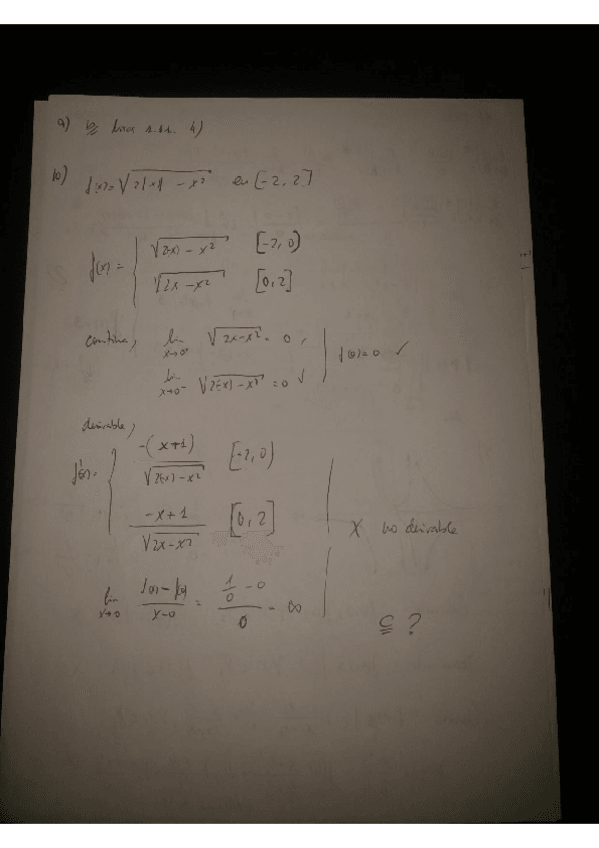 a)
10) f(x)=√2|x| - x² en [-2, 2]
f(x) = { √2(-x) - x² [-2, 0)
√2x - x² [0, 2]
continua, lim x→0⁺ √2x-x² = 0, | f(0)=0 ✓
lim x→0⁻ √2(-x) - x² = 0 ✓
derivable,
f'(x) = { -(x+1) / √2(-x) - x² [-2, 0)
-x+1 / √2x - x² [0, 2] | X no derivable
lim x→0 f(x) - f(0) / x-0 = 1/0 - 0 / 0 = ∞
c ?